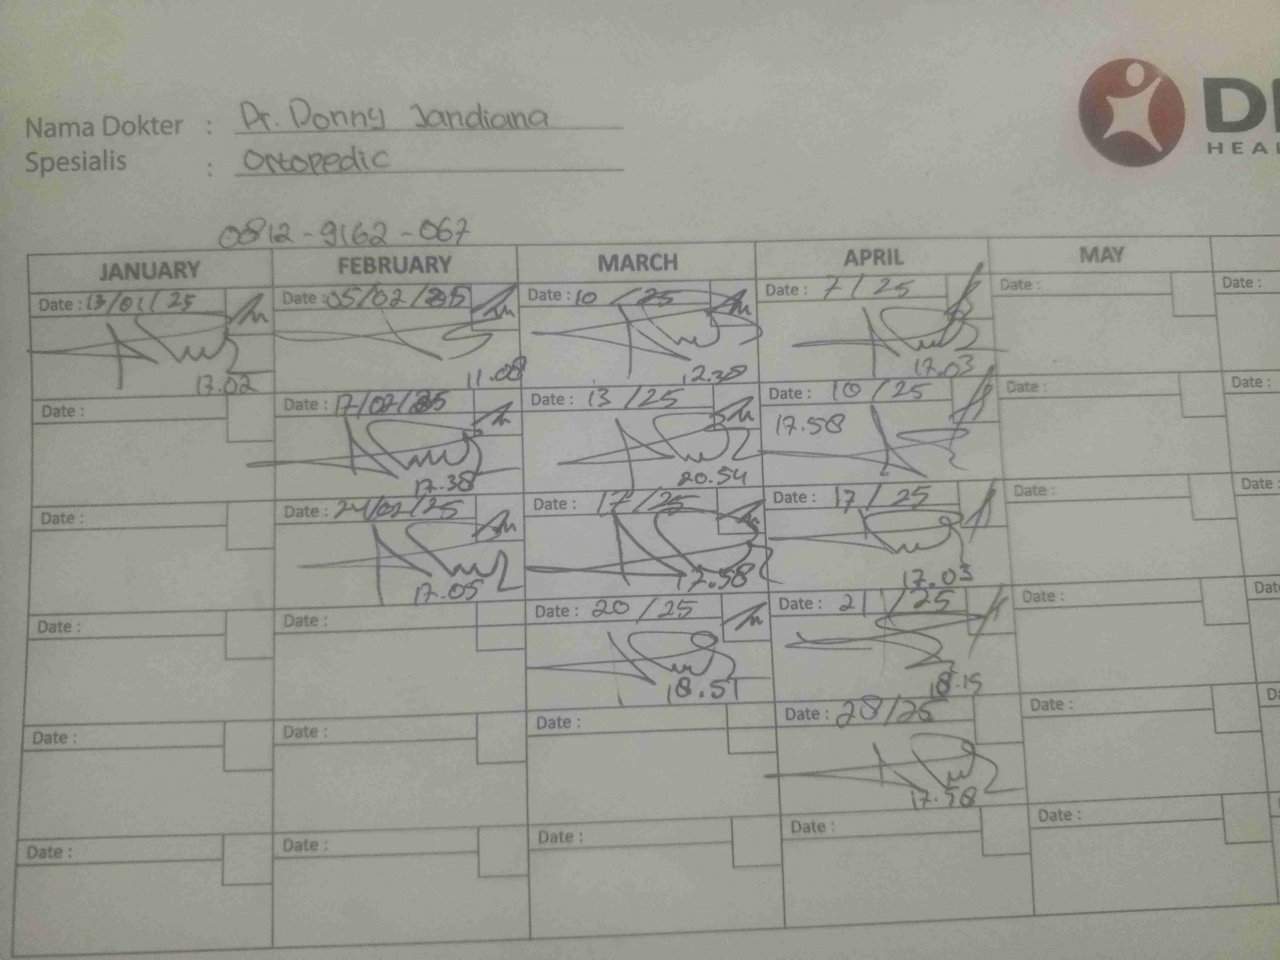 Nama Dokter : Dr. Donny Jandiana
Spesialis : Ortopedic
0812-9162-067
JANUARY FEBRUARY MARCH APRIL MAY
Date : 13/01/25 Date : 05/02/25 Date : 10 /25 Date : 7/25 Date : Date :
17.02 11.08 12.38 17.03
Date : Date : 17/02/25 Date : 13/25 Date : 10/25 Date : Date :
17.38 20.54 17.58
Date : Date : 24/02/25 Date : 17/25 Date : 17/25 Date : Date
17.05 17.58 17.03
Date : Date : Date : 20/25 Date : 21/25 Date :
18.51 18.15
Date : Date : Date : Date : 28/25 Date :
17.58
Date : Date : Date : Date : Date :